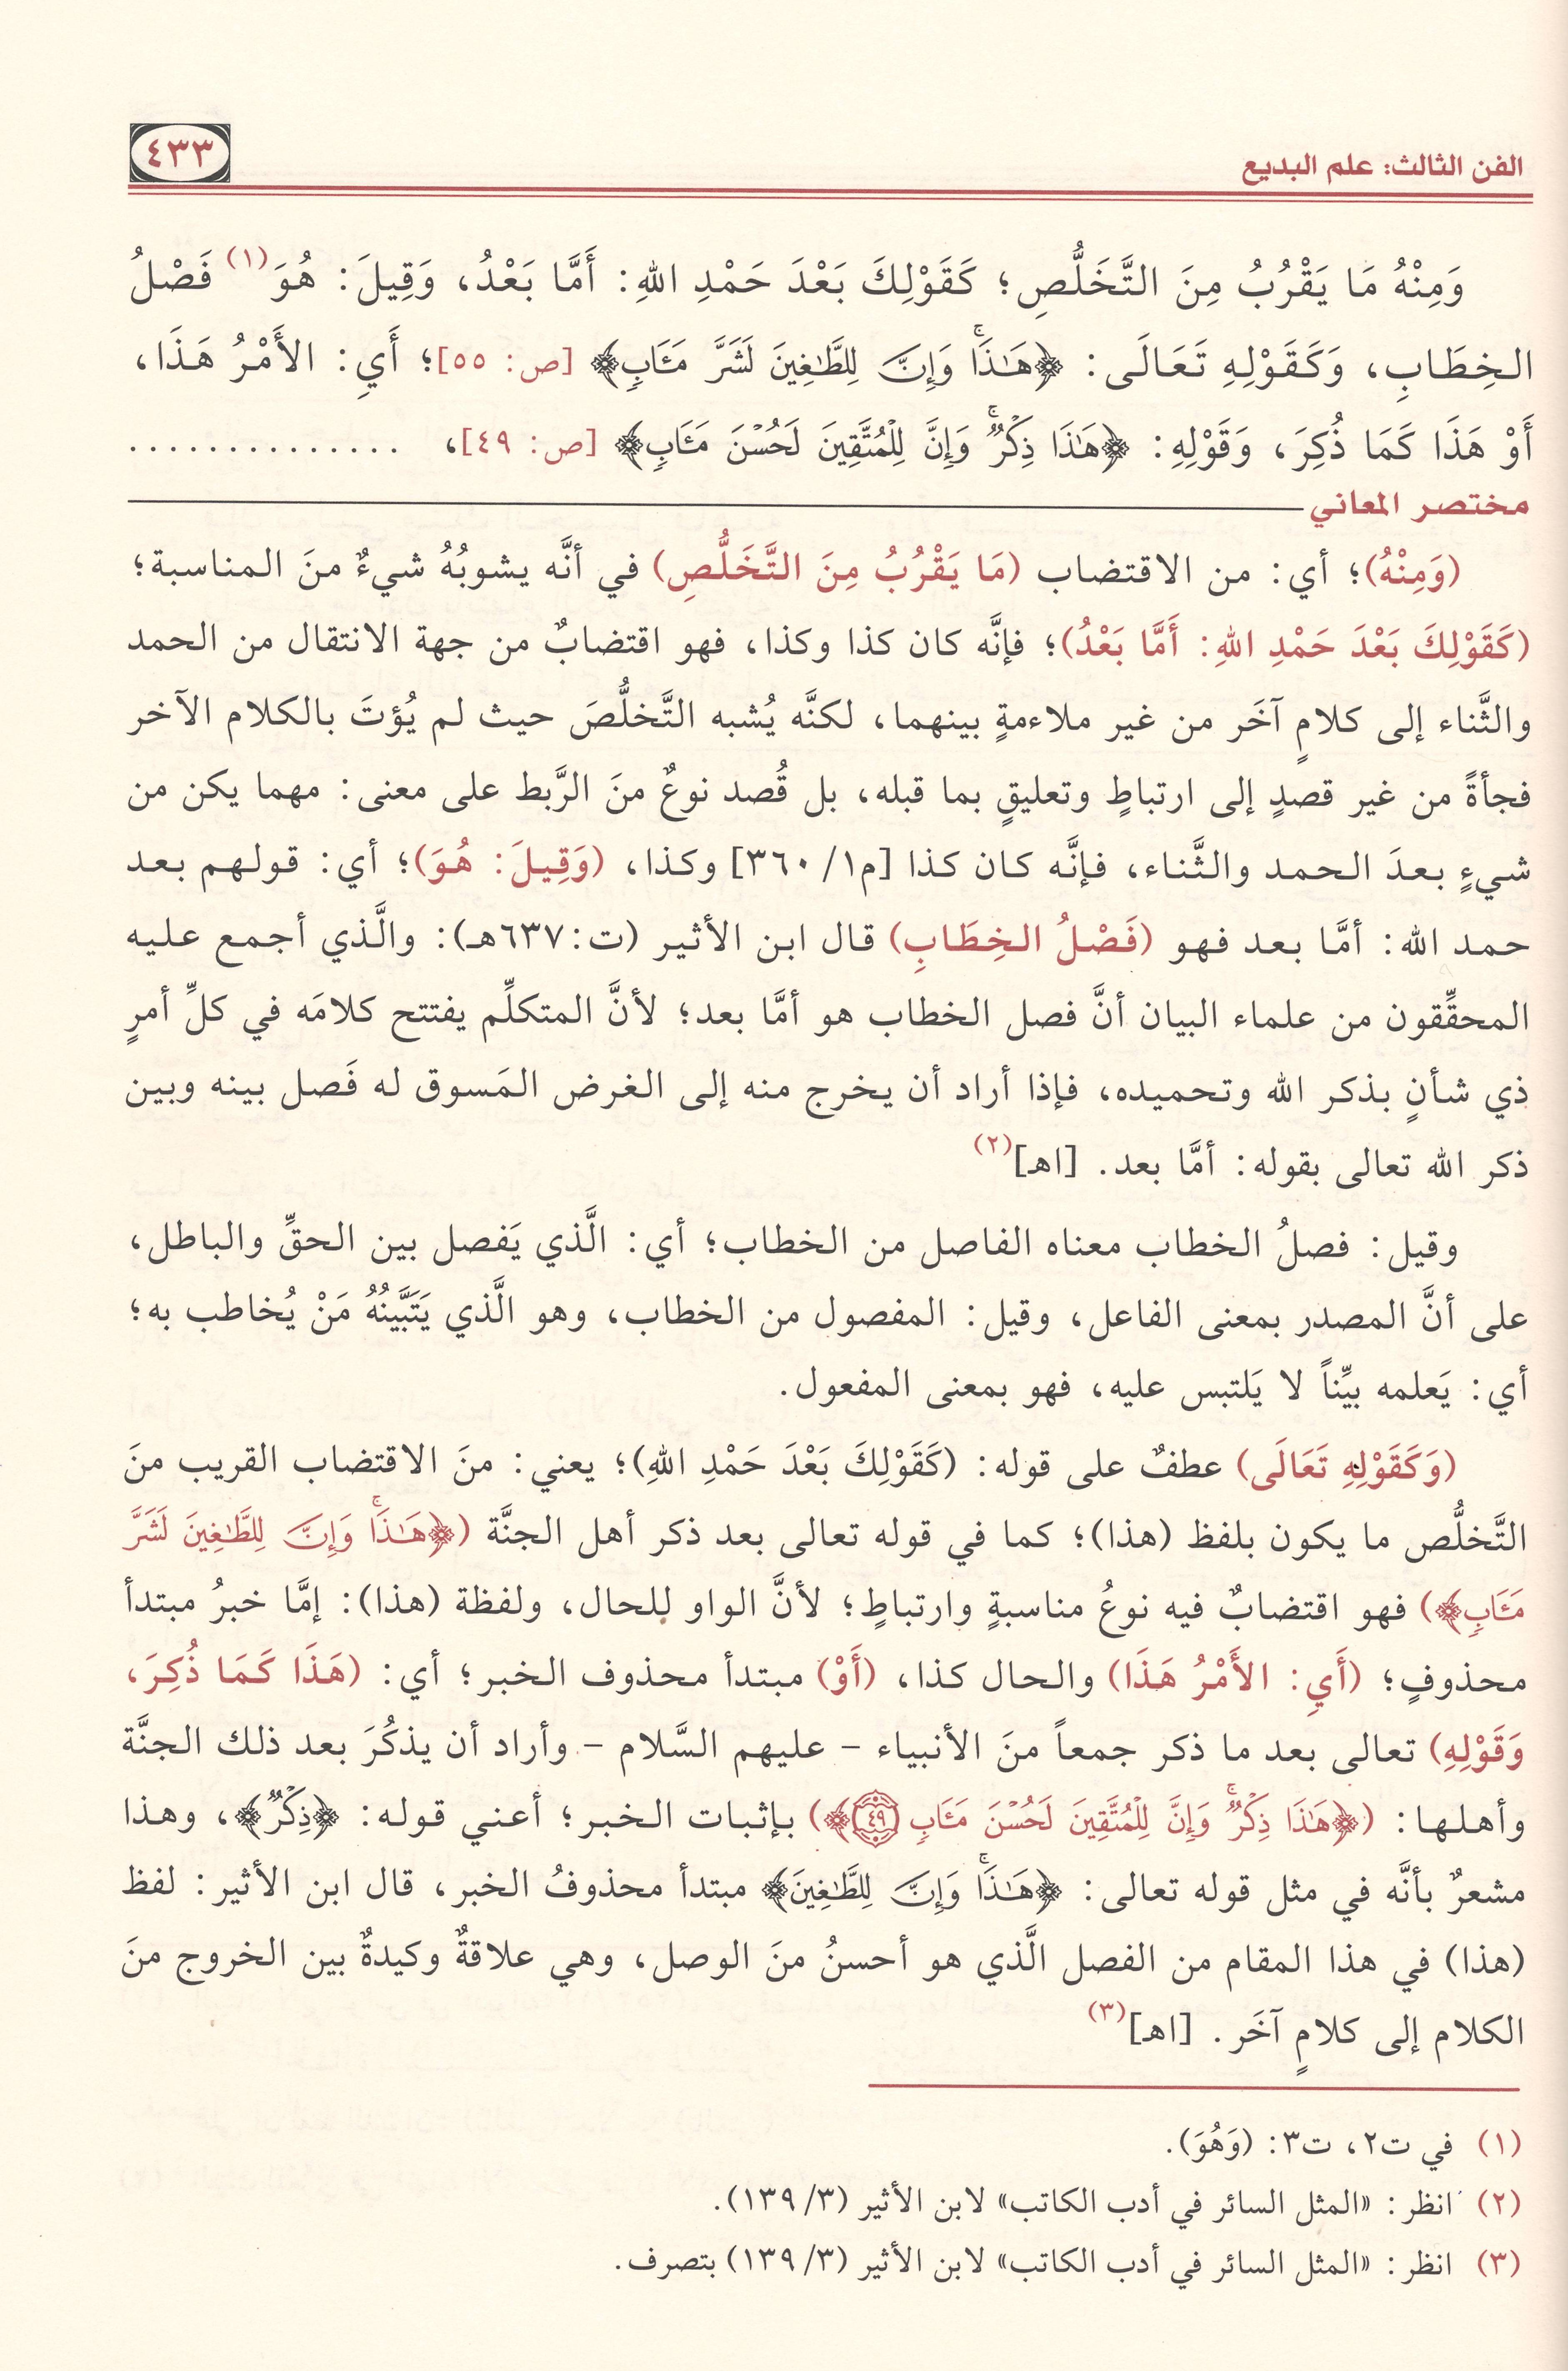 الفن الثالث: علم البديع
٤٣٣
وَمِنْهُ مَا يَقْرُبُ مِنَ التَّخَلُّصِ؛ كَقَوْلِكَ بَعْدَ حَمْدِ اللهِ: أَمَّا بَعْدُ، وَقِيلَ: هُوَ(١) فَصْلُ
الخِطَابِ، وَكَقَوْلِهِ تَعَالَى: ﴿هَٰذَاۚ وَإِنَّ لِلطَّٰغِينَ لَشَرَّ مَـَٔابٖ﴾ [ص: ٥٥]؛ أَيِ: الأَمْرُ هَذَا،
أَوْ هَذَا كَمَا ذُكِرَ، وَقَوْلِهِ: ﴿هَٰذَا ذِكۡرٞۚ وَإِنَّ لِلۡمُتَّقِينَ لَحُسۡنَ مَـَٔابٖ﴾ [ص: ٤٩]، ..............
مختصر المعاني
(وَمِنْهُ)؛ أي: من الاقتضاب (مَا يَقْرُبُ مِنَ التَّخَلُّصِ) في أنَّه يشوبُهُ شيءٌ منَ المناسبة؛
(كَقَوْلِكَ بَعْدَ حَمْدِ اللهِ: أَمَّا بَعْدُ)؛ فإنَّه كان كذا وكذا، فهو اقتضابٌ من جهة الانتقال من الحمد
والثَّناء إلى كلامٍ آخَر من غير ملاءمةٍ بينهما، لكنَّه يُشبه التَّخلُّصَ حيث لم يُؤتَ بالكلام الآخر
فجأةً من غير قصدٍ إلى ارتباطٍ وتعليقٍ بما قبله، بل قُصد نوعٌ منَ الرَّبط على معنى: مهما يكن من
شيءٍ بعدَ الحمد والثَّناء، فإنَّه كان كذا [م١/ ٣٦٠] وكذا، (وَقِيلَ: هُوَ)؛ أي: قولهم بعد
حمد الله: أمَّا بعد فهو (فَصْلُ الخِطَابِ) قال ابن الأثير (ت: ٦٣٧هـ): والَّذي أجمع عليه
المحقِّقون من علماء البيان أنَّ فصل الخطاب هو أمَّا بعد؛ لأنَّ المتكلِّم يفتتح كلامَه في كلِّ أمرٍ
ذي شأنٍ بذكر الله وتحميده، فإذا أراد أن يخرج منه إلى الغرض المَسوق له فَصل بينه وبين
ذكر الله تعالى بقوله: أمَّا بعد. [اهـ](٢)
وقيل: فصلُ الخطاب معناه الفاصل من الخطاب؛ أي: الَّذي يَفصل بين الحقِّ والباطل،
على أنَّ المصدر بمعنى الفاعل، وقيل: المفصول من الخطاب، وهو الَّذي يَتَبَيَّنُهُ مَنْ يُخاطب به؛
أي: يَعلمه بيِّناً لا يَلتبس عليه، فهو بمعنى المفعول.
(وَكَقَوْلِهِ تَعَالَى) عطفٌ على قوله: (كَقَوْلِكَ بَعْدَ حَمْدِ اللهِ)؛ يعني: منَ الاقتضاب القريب منَ
التَّخلُّص ما يكون بلفظ (هذا)؛ كما في قوله تعالى بعد ذكر أهل الجنَّة (﴿هَٰذَاۚ وَإِنَّ لِلطَّٰغِينَ لَشَرَّ
مَـَٔابٖ﴾) فهو اقتضابٌ فيه نوعُ مناسبةٍ وارتباطٍ؛ لأنَّ الواو للحال، ولفظة (هذا): إمَّا خبرُ مبتدأ
محذوفٍ؛ (أَيِ: الأَمْرُ هَذَا) والحال كذا، (أَوْ) مبتدأ محذوف الخبر؛ أي: (هَذَا كَمَا ذُكِرَ،
وَقَوْلِهِ) تعالى بعد ما ذكر جمعاً منَ الأنبياء - عليهم السَّلام - وأراد أن يذكُرَ بعد ذلك الجنَّة
وأهلها: (﴿هَٰذَا ذِكۡرٞۚ وَإِنَّ لِلۡمُتَّقِينَ لَحُسۡنَ مَـَٔابٖ ٤٩﴾) بإثبات الخبر؛ أعني قوله: ﴿ذِكۡرٞ﴾، وهذا
مشعرٌ بأنَّه في مثل قوله تعالى: ﴿هَٰذَاۚ وَإِنَّ لِلطَّٰغِينَ﴾ مبتدأ محذوفُ الخبر، قال ابن الأثير: لفظ
(هذا) في هذا المقام من الفصل الَّذي هو أحسنُ منَ الوصل، وهي علاقةٌ وكيدةٌ بين الخروج منَ
الكلام إلى كلامٍ آخَر. [اهـ](٣)
(١) في ت٢، ت٣: (وَهُوَ).
(٢) انظر: «المثل السائر في أدب الكاتب» لابن الأثير (٣/ ١٣٩).
(٣) انظر: «المثل السائر في أدب الكاتب» لابن الأثير (٣/ ١٣٩) بتصرف.